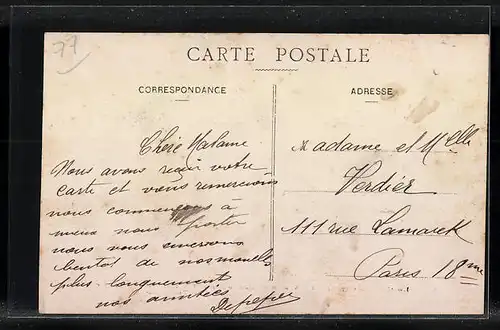 77
CARTE POSTALE
CORRESPONDANCE
ADRESSE
Chère Madame
Nous avons reçu votre
carte et vous remercions
nous commençons à
mieux nous porter
nous vous enverrons
bientot de nos nouvelles
plus longuement
nos amitiés
Madame et Melle
Verdier
111 rue Lamarck
Paris 18me